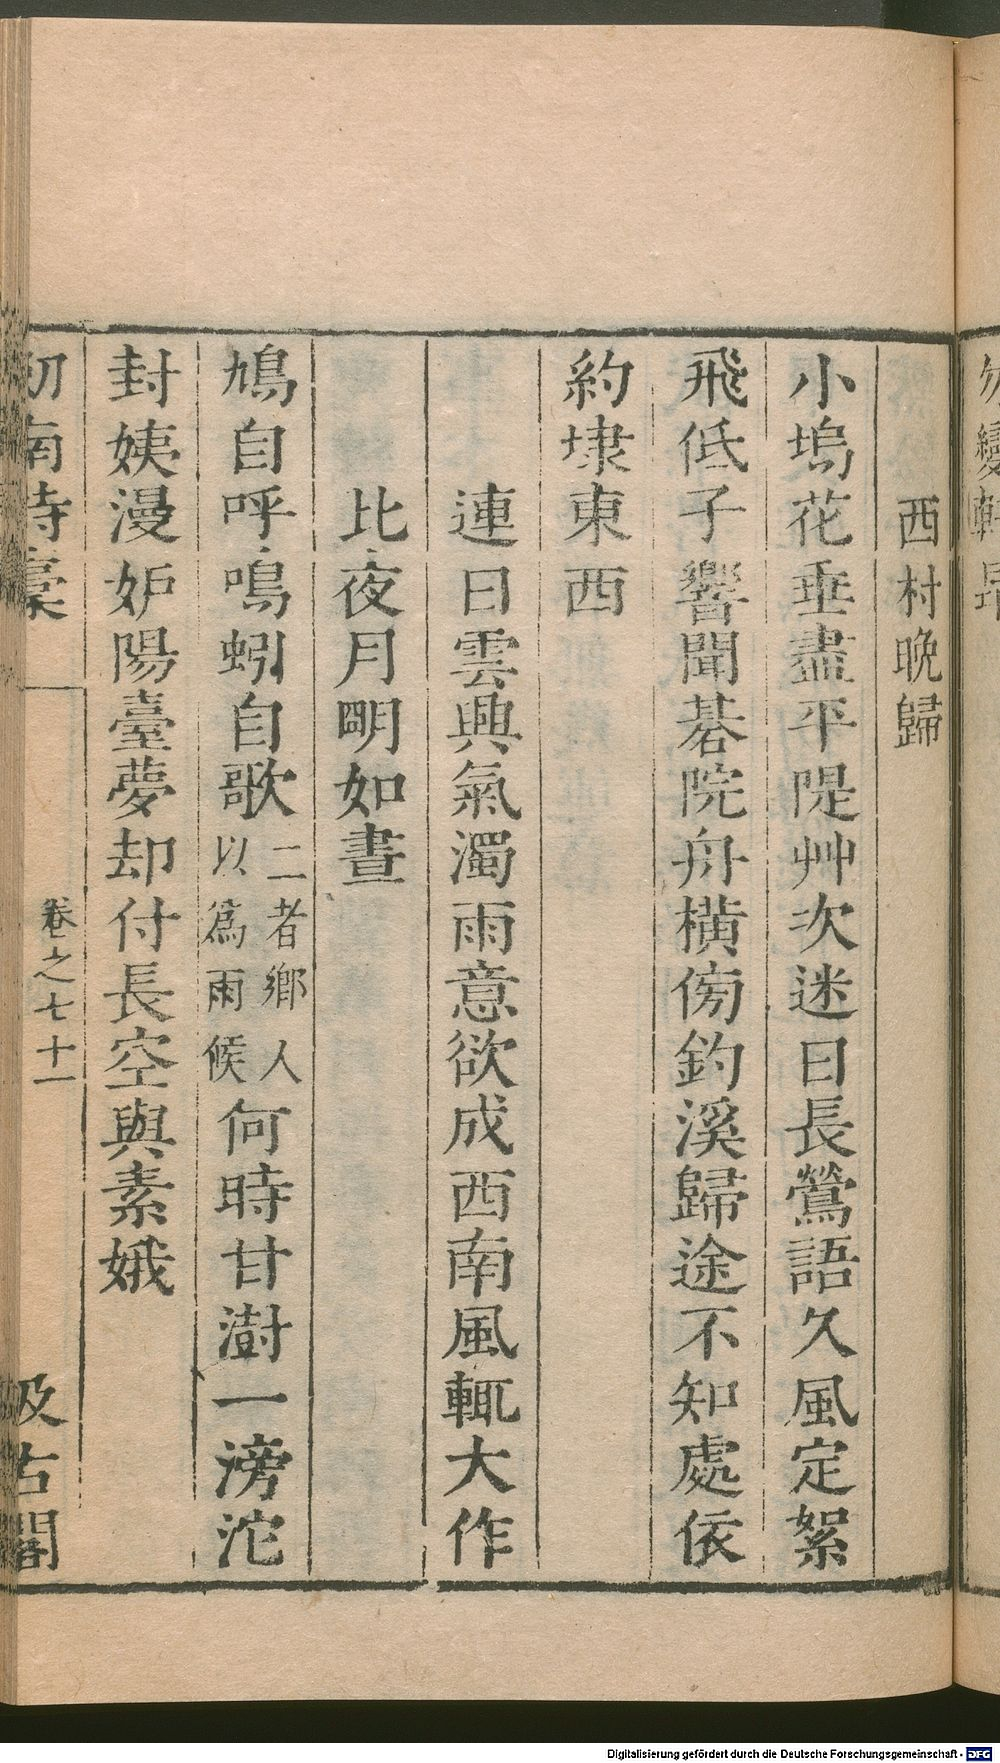 西村晚歸
小塢花垂盡平隄艸次迷日長鶯語久風定絮
飛低子響聞碁院舟橫傍釣溪歸途不知處依
約埭東西
連日雲興氣濁雨意欲成西南風輒大作
比夜月明如晝
鳩自呼鳴蚓自歌
二者鄉人
以爲雨候
何時甘澍一滂沱
封姨漫妒陽臺夢却付長空與素娥
南詩稾
卷之七十一
汲古閣
Digitalisierung gefördert durch die Deutsche Forschungsgemeinschaft - DFG